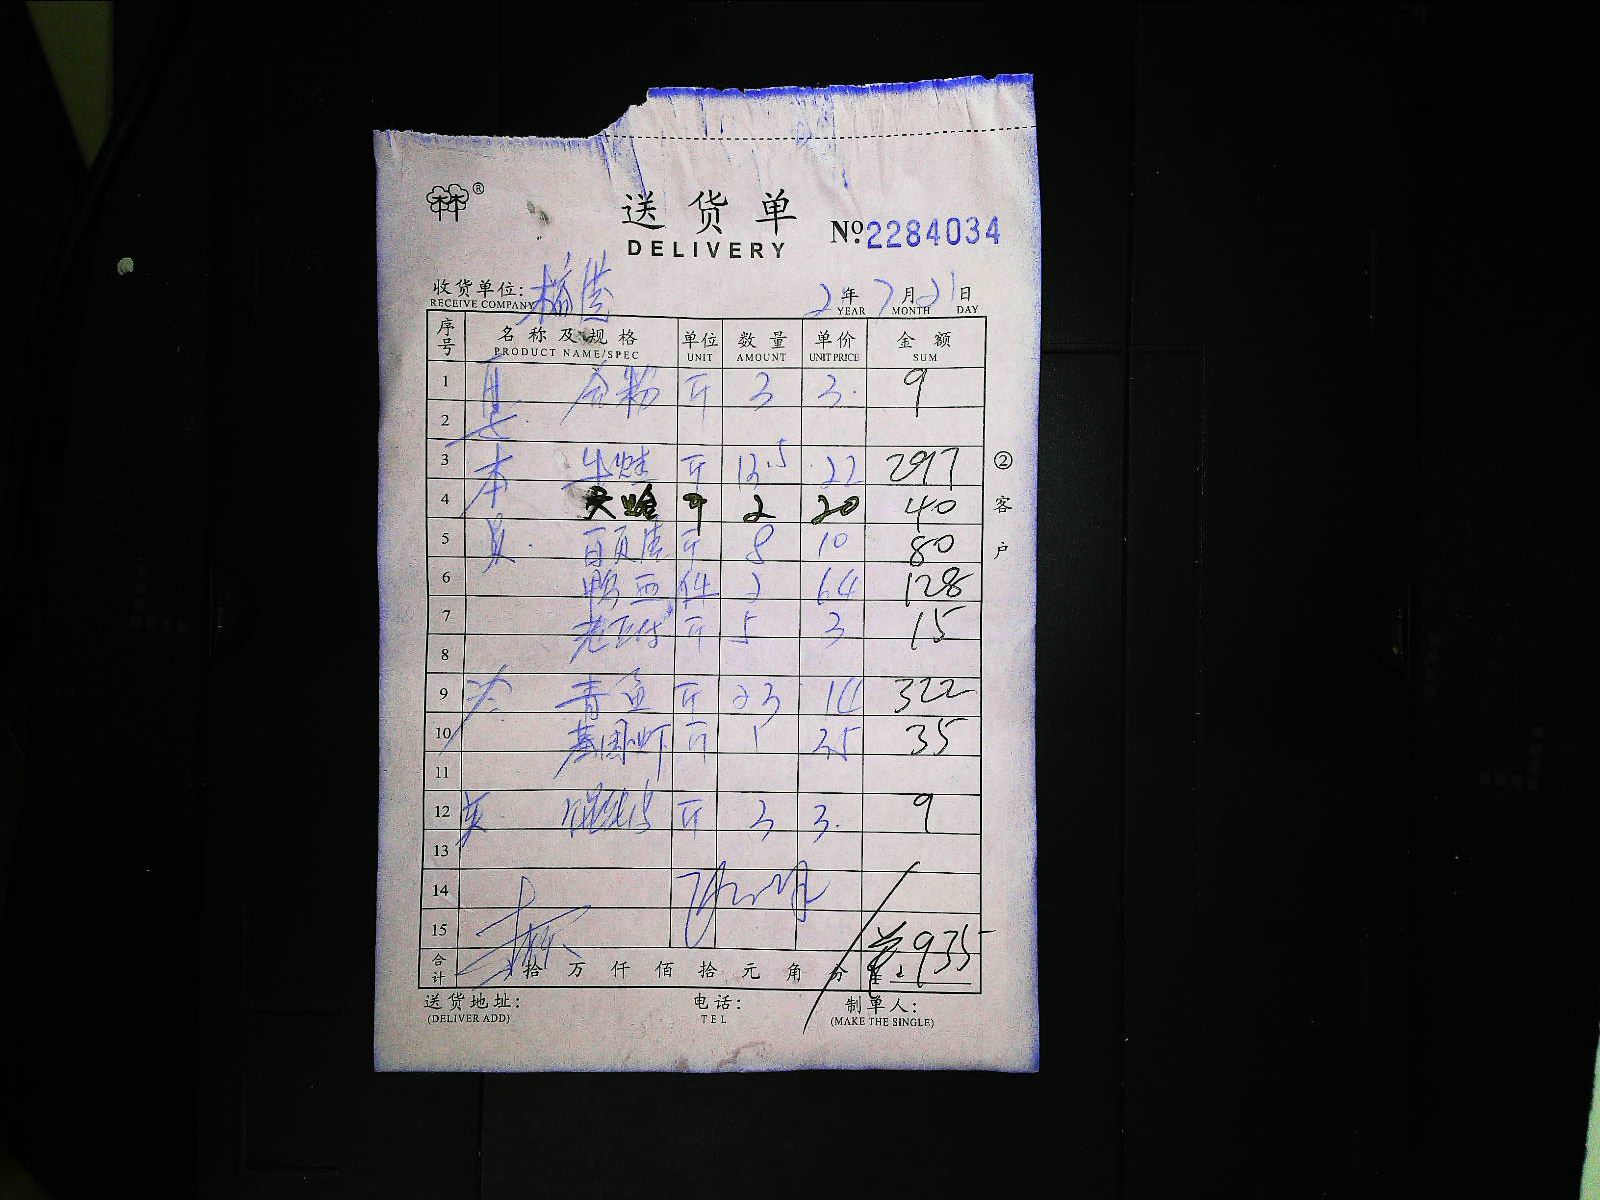 林林®
送货单
№2284034
DELIVERY
收货单位: 2年7月21日
RECEIVE COMPANY YEAR MONTH DAY
序号 名称及规格 单位 数量 单价 金额
PRODUCT NAME/SPEC UNIT AMOUNT UNIT PRICE SUM
1 斤 3 3. 9
2
3 斤 13.5 22 297
4 斤 2 20 40
5 百页 斤 8 10 80
6 鸭血 件 2 64 128
7 斤 5 3 15
8
9 青鱼 斤 23 14 322
10 基围虾 斤 1 35 35
11
12 斤 3 3. 9
13
14
15 935
合计 拾万仟佰拾元角分
②客户
送货地址: 电话: 制单人:
(DELIVER ADD) TEL (MAKE THE SINGLE)